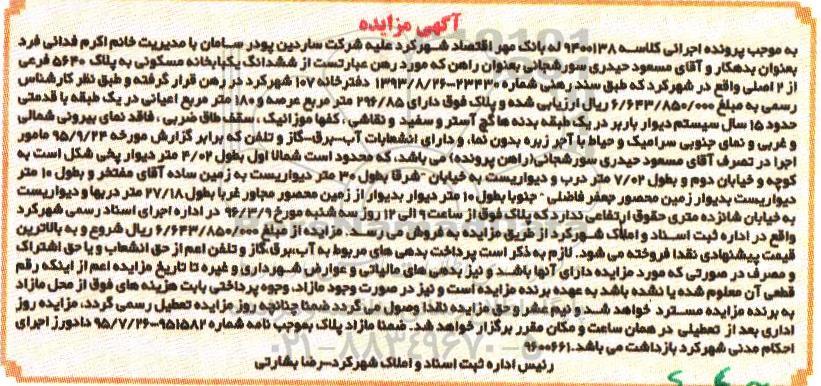 آگهی مزایده
به موجب پرونده اجرائی کلاسه ۹۴۰۰۱۳۸ له بانک مهر اقتصاد شهرکرد علیه شرکت ساردین پودر سامان با مدیریت خانم اکرم فدائی فرد
بعنوان بدهکار و آقای مسعود حیدری سورشجانی بعنوان راهن که مورد رهن عبارتست از ششدانگ یکبابخانه مسکونی به پلاک ۵۶۴۰ فرعی
از ۲ اصلی واقع در شهرکرد که طبق سند رهنی شماره ۲۳۴۳۰-۱۳۹۳/۸/۲۶ دفترخانه ۱۰۷ شهرکرد در رهن قرار گرفته و طبق نظر کارشناس
رسمی به مبلغ ۶/۶۴۳/۸۵۰/۰۰۰ ریال ارزیابی شده و پلاک فوق دارای ۲۹۶/۸۵ متر مربع عرصه و ۱۸۰ متر مربع اعیانی در یک طبقه با قدمتی
حدود ۱۵ سال سیستم دیوار باربر در یک طبقه بدنه ها گچ آستر و سفید و نقاشی، کفها موزائیک، سقف طاق ضربی، فاقد نمای بیرونی شمالی
و غربی و نمای جنوبی سرامیک و حیاط با آجر زبره بدون نما، و دارای انشعابات آب-برق-گاز و تلفن که برابر گزارش مورخه ۹۵/۹/۲۴ مامور
اجرا در تصرف آقای مسعود حیدری سورشجانی(راهن پرونده) می باشد، که محدود است شمالا اول بطول ۴/۰۲ متر دیوار پخی شکل است به
کوچه و خیابان دوم و بطول ۷/۰۲ متر درب و دیواریست به خیابان - شرقا بطول ۳۰ متر دیواریست به زمین ساده آقای مفتخر و بطول ۱۰ متر
دیواریست بدیوار زمین محصور جعفر فاضلی - جنوبا بطول ۱۰ متر دیوار بدیوار از زمین محصور مجاور غربا بطول ۲۷/۱۸ متر دربها و دیواریست
به خیابان شانزده متری حقوق ارتفاعی ندارد که پلاک فوق از ساعت ۹ الی ۱۲ روز سه شنبه مورخ ۹۶/۳/۹ در اداره اجرای اسناد رسمی شهرکرد
واقع در اداره ثبت اسناد و املاک شهرکرد از طریق مزایده به فروش می رسد. مزایده از مبلغ ۶/۶۴۳/۸۵۰/۰۰۰ ریال شروع و به بالاترین
قیمت پیشنهادی نقدا فروخته می شود. لازم به ذکر است پرداخت بدهی های مربوط به آب،برق،گاز و تلفن اعم از حق انشعاب و یا حق اشتراک
و مصرف در صورتی که مورد مزایده دارای آنها باشد و نیز بدهی های مالیاتی و عوارض شهرداری و غیره تا تاریخ مزایده اعم از اینکه رقم
قطعی آن معلوم شده یا نشده باشد به عهده برنده مزایده است و نیز در صورت وجود مازاد، وجوه پرداختی بابت هزینه های فوق از محل مازاد
به برنده مزایده مسترد خواهد شد و نیم عشر و حق مزایده نقدا وصول می گردد ضمنا چنانچه روز مزایده تعطیل رسمی گردد، مزایده روز
اداری بعد از تعطیلی در همان ساعت و مکان مقرر برگزار خواهد شد. ضمنا مازاد پلاک بموجب نامه شماره ۹۵۱۵۸۲-۹۵/۷/۲۶ دادورز اجرای
احکام مدنی شهرکرد بازداشت می باشد.۹۶۰۰۶۶۱
رئیس اداره ثبت اسناد و املاک شهرکرد-رضا بشارتی
۰۲۱-۸۸۳۴۹۶۷۰-۵